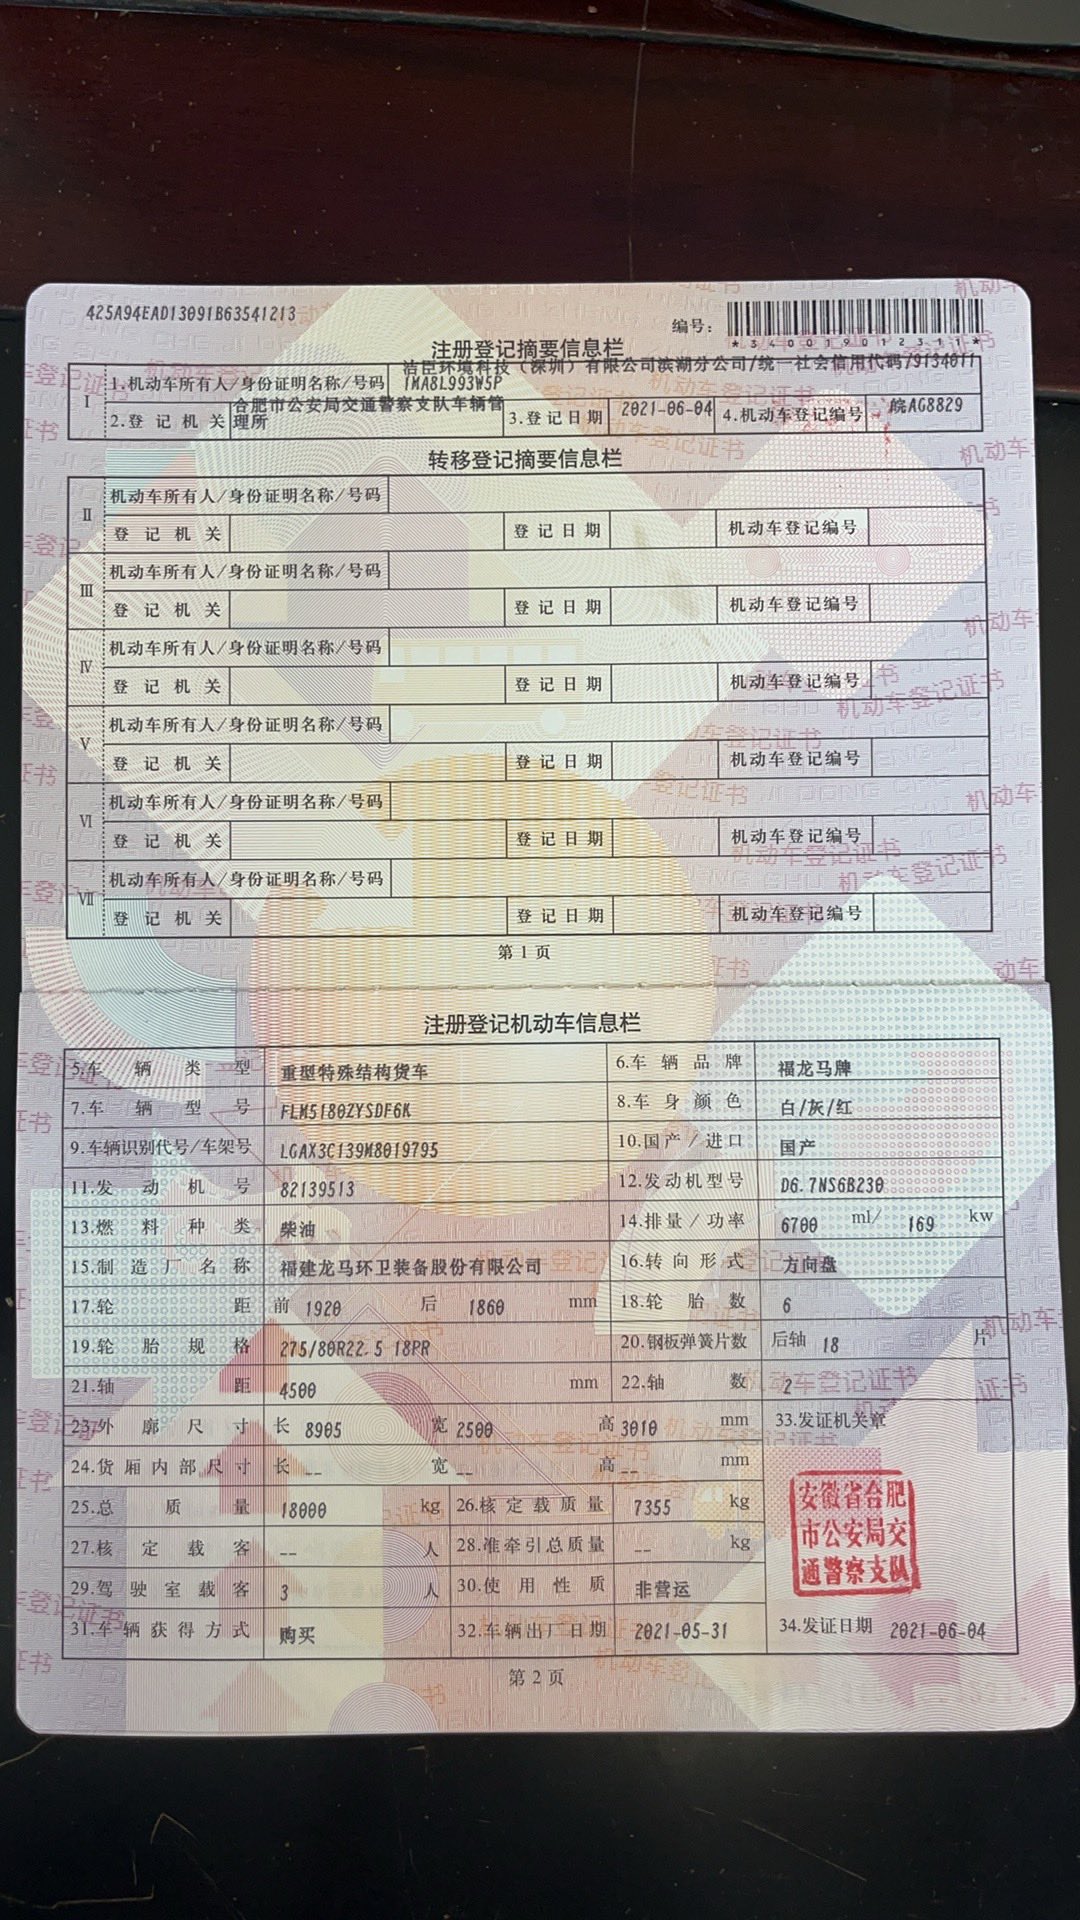 425A94EAD13091B63541213
编号:
*340019012311*
注册登记摘要信息栏
I
1.机动车所有人/身份证明名称/号码 洁臣环境科技（深圳）有限公司滨湖分公司/统一社会信用代码/91340111MA8L993W5P
2.登记机关 合肥市公安局交通警察支队车辆管理所 3.登记日期 2021-06-04 4.机动车登记编号 皖AG8829
转移登记摘要信息栏
II
机动车所有人/身份证明名称/号码
登记机关 登记日期 机动车登记编号
III
机动车所有人/身份证明名称/号码
登记机关 登记日期 机动车登记编号
IV
机动车所有人/身份证明名称/号码
登记机关 登记日期 机动车登记编号
V
机动车所有人/身份证明名称/号码
登记机关 登记日期 机动车登记编号
VI
机动车所有人/身份证明名称/号码
登记机关 登记日期 机动车登记编号
VII
机动车所有人/身份证明名称/号码
登记机关 登记日期 机动车登记编号
第1页
注册登记机动车信息栏
5.车辆类型 重型特殊结构货车 6.车辆品牌 福龙马牌
7.车辆型号 FLM5180ZYSDF6K 8.车身颜色 白/灰/红
9.车辆识别代号/车架号 LGAX3C139M8019795 10.国产/进口 国产
11.发动机号 82139513 12.发动机型号 D6.7NS6B230
13.燃料种类 柴油 14.排量/功率 6700 ml/ 169 kw
15.制造厂名称 福建龙马环卫装备股份有限公司 16.转向形式 方向盘
17.轮距 前 1920 后 1860 mm 18.轮胎数 6
19.轮胎规格 275/80R22.5 18PR 20.钢板弹簧片数 后轴 18 片
21.轴距 4500 mm 22.轴数 2
23.外廓尺寸 长 8905 宽 2500 高 3010 mm 33.发证机关章
24.货厢内部尺寸 长 -- 宽 -- 高 -- mm
25.总质量 18000 kg 26.核定载质量 7355 kg
27.核定载客 -- 人 28.准牵引总质量 -- kg
29.驾驶室载客 3 人 30.使用性质 非营运
31.车辆获得方式 购买 32.车辆出厂日期 2021-05-31 34.发证日期 2021-06-04
安徽省合肥
市公安局交
通警察支队
第2页